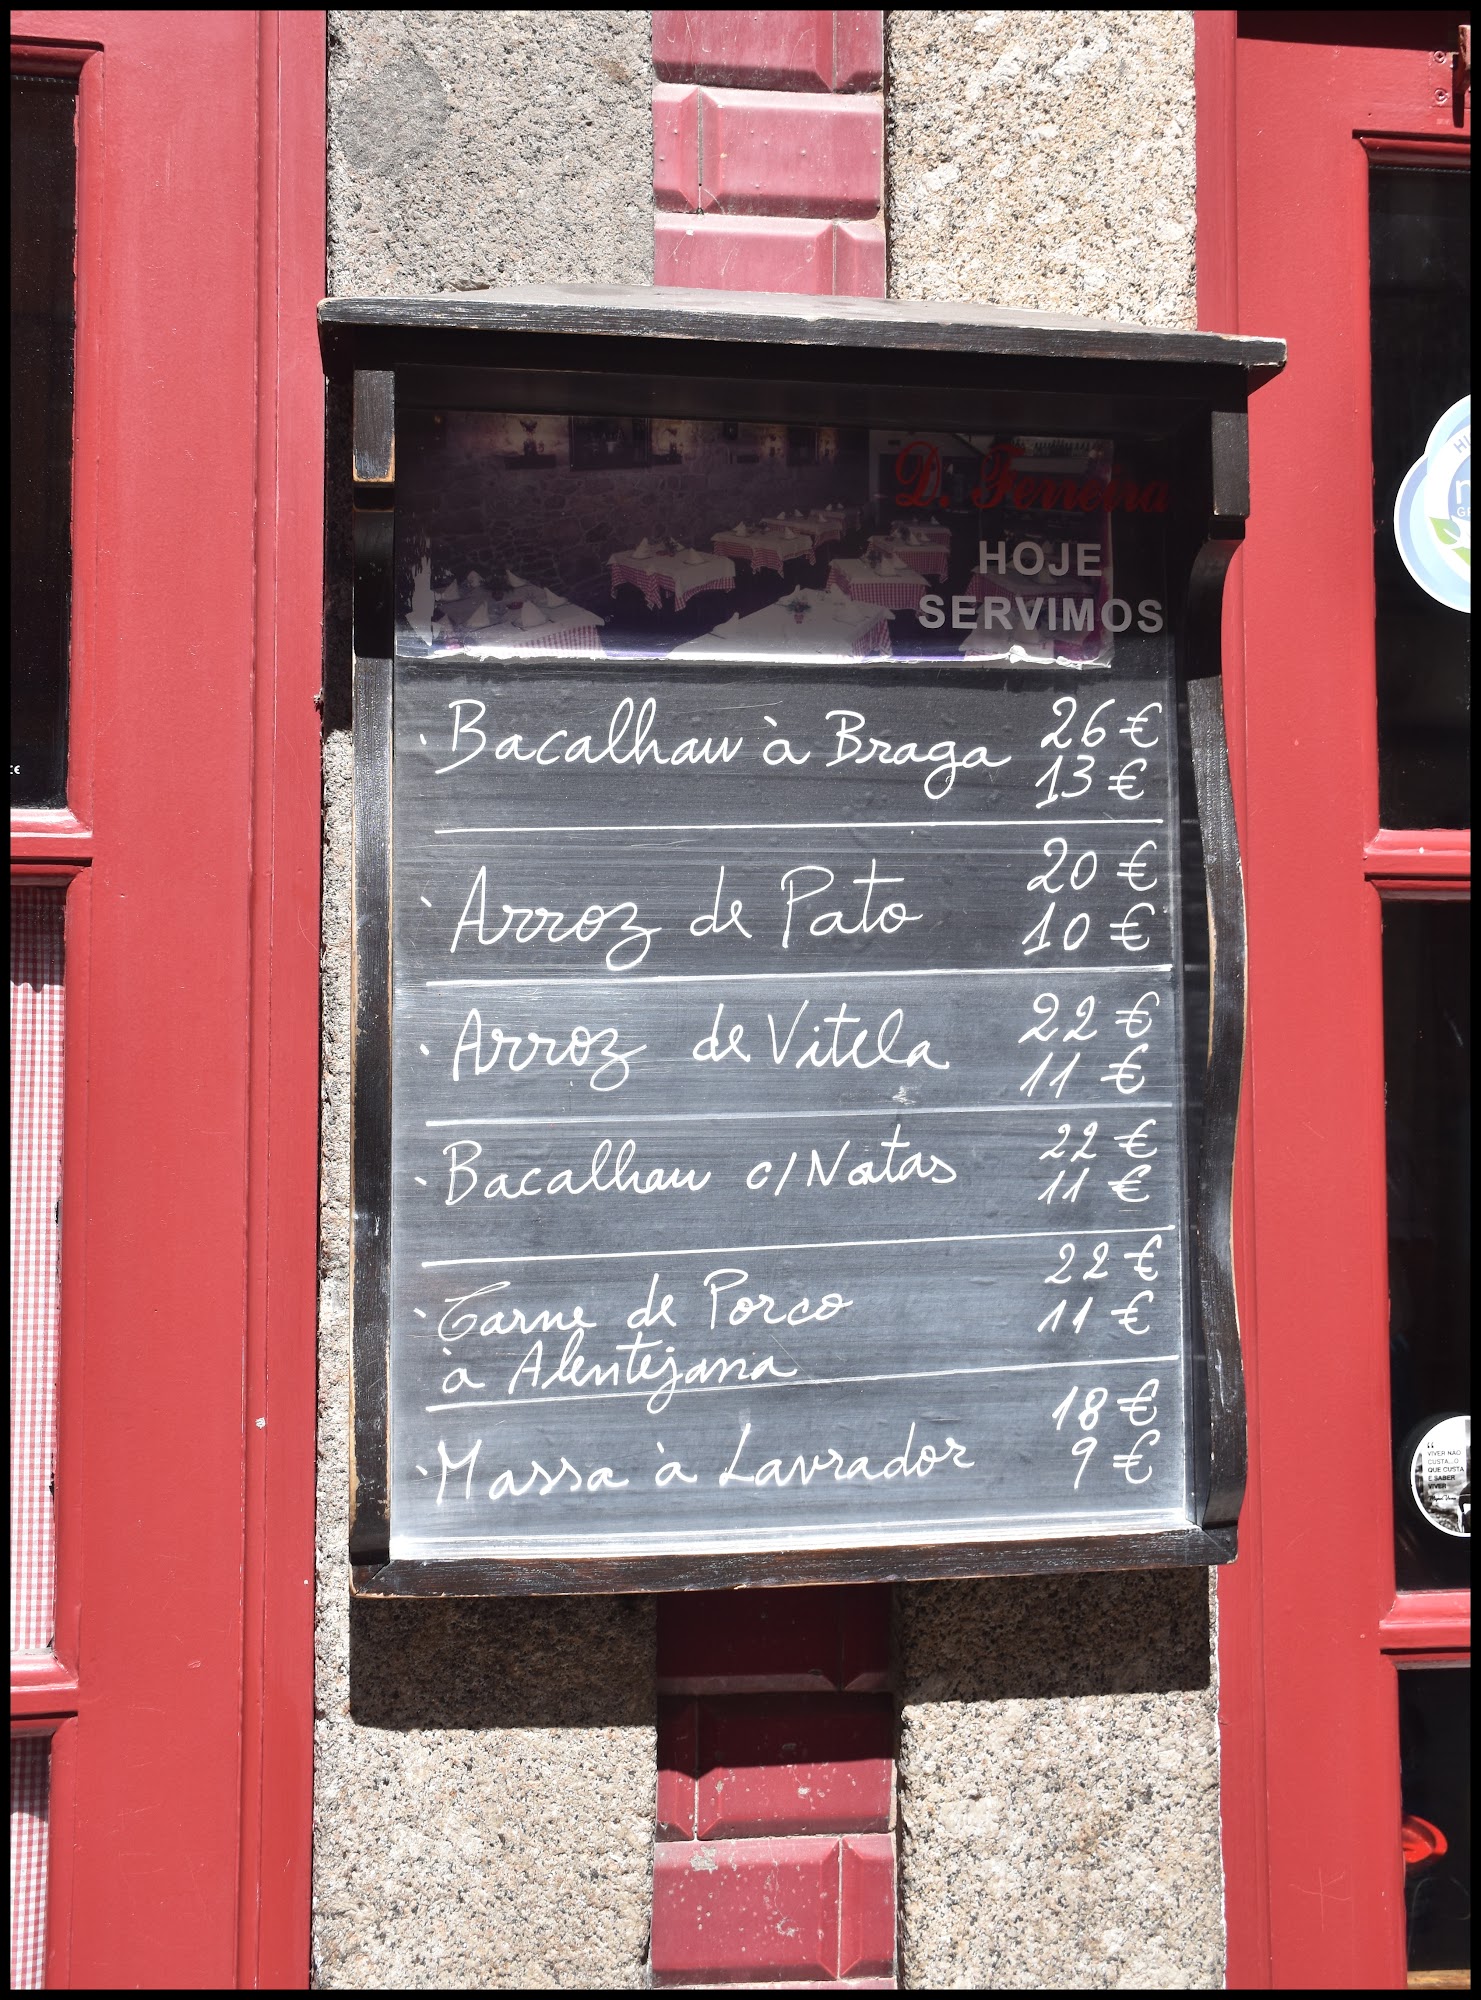 D. Ferreira
HOJE
SERVIMOS
· Bacalhau à Braga 26 €
13 €
· Arroz de Pato 20 €
10 €
· Arroz de Vitela 22 €
11 €
· Bacalhau c/ Natas 22 €
11 €
· Carne de Porco 22 €
à Alentejana 11 €
· Massa à Lavrador 18 €
9 €
"VIVER NÃO
CUSTA...O
QUE CUSTA
É SABER
VIVER